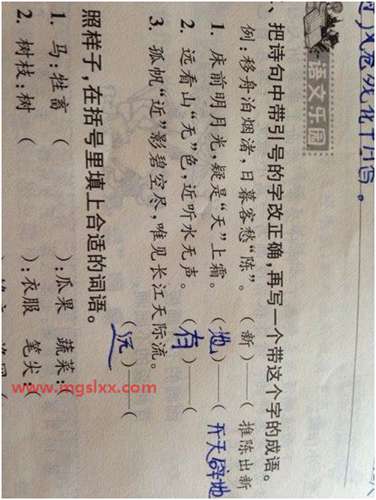 语文乐园
、把诗句中带引号的字改正确,再写一个带这个字的成语。
例:移舟泊烟渚,日暮客愁“陈”。 (新)——( 推陈出新
1. 床前明月光,疑是“天”上霜。 (地)——( 开天辟地
2. 远看山“无”色,近听水无声。 (有)——(
3. 孤帆“近”影碧空尽,唯见长江天际流。
(远)——(
照样子,在括号里填上合适的词语。
1. 马:牲畜 ( ):瓜果 蔬菜:
2. 树枝:树 ( ):衣服 笔尖:(
www.mgslxx.com